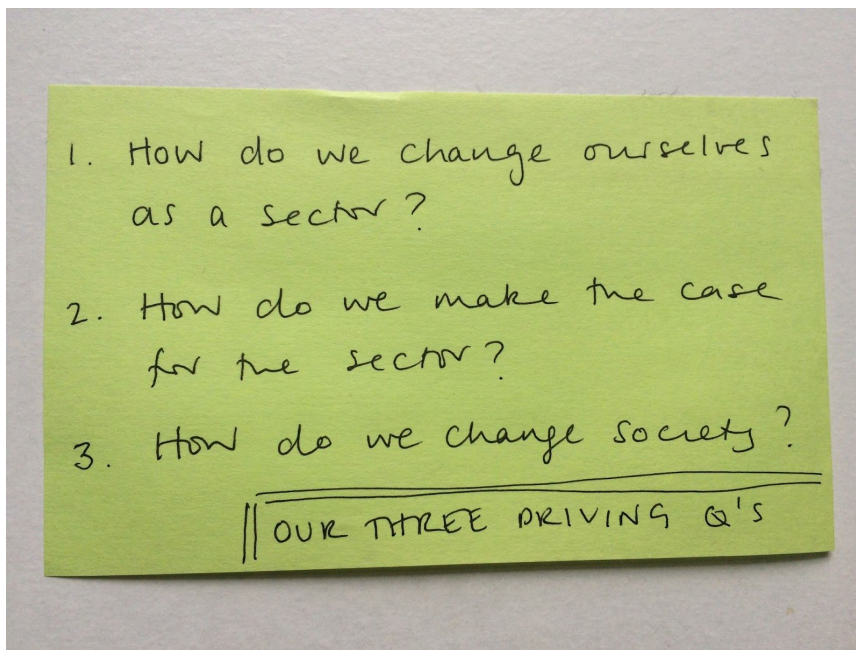 1. How do we change ourselves
as a sector?
2. How do we make the case
for the sector?
3. How do we change society?
OUR THREE DRIVING Q'S